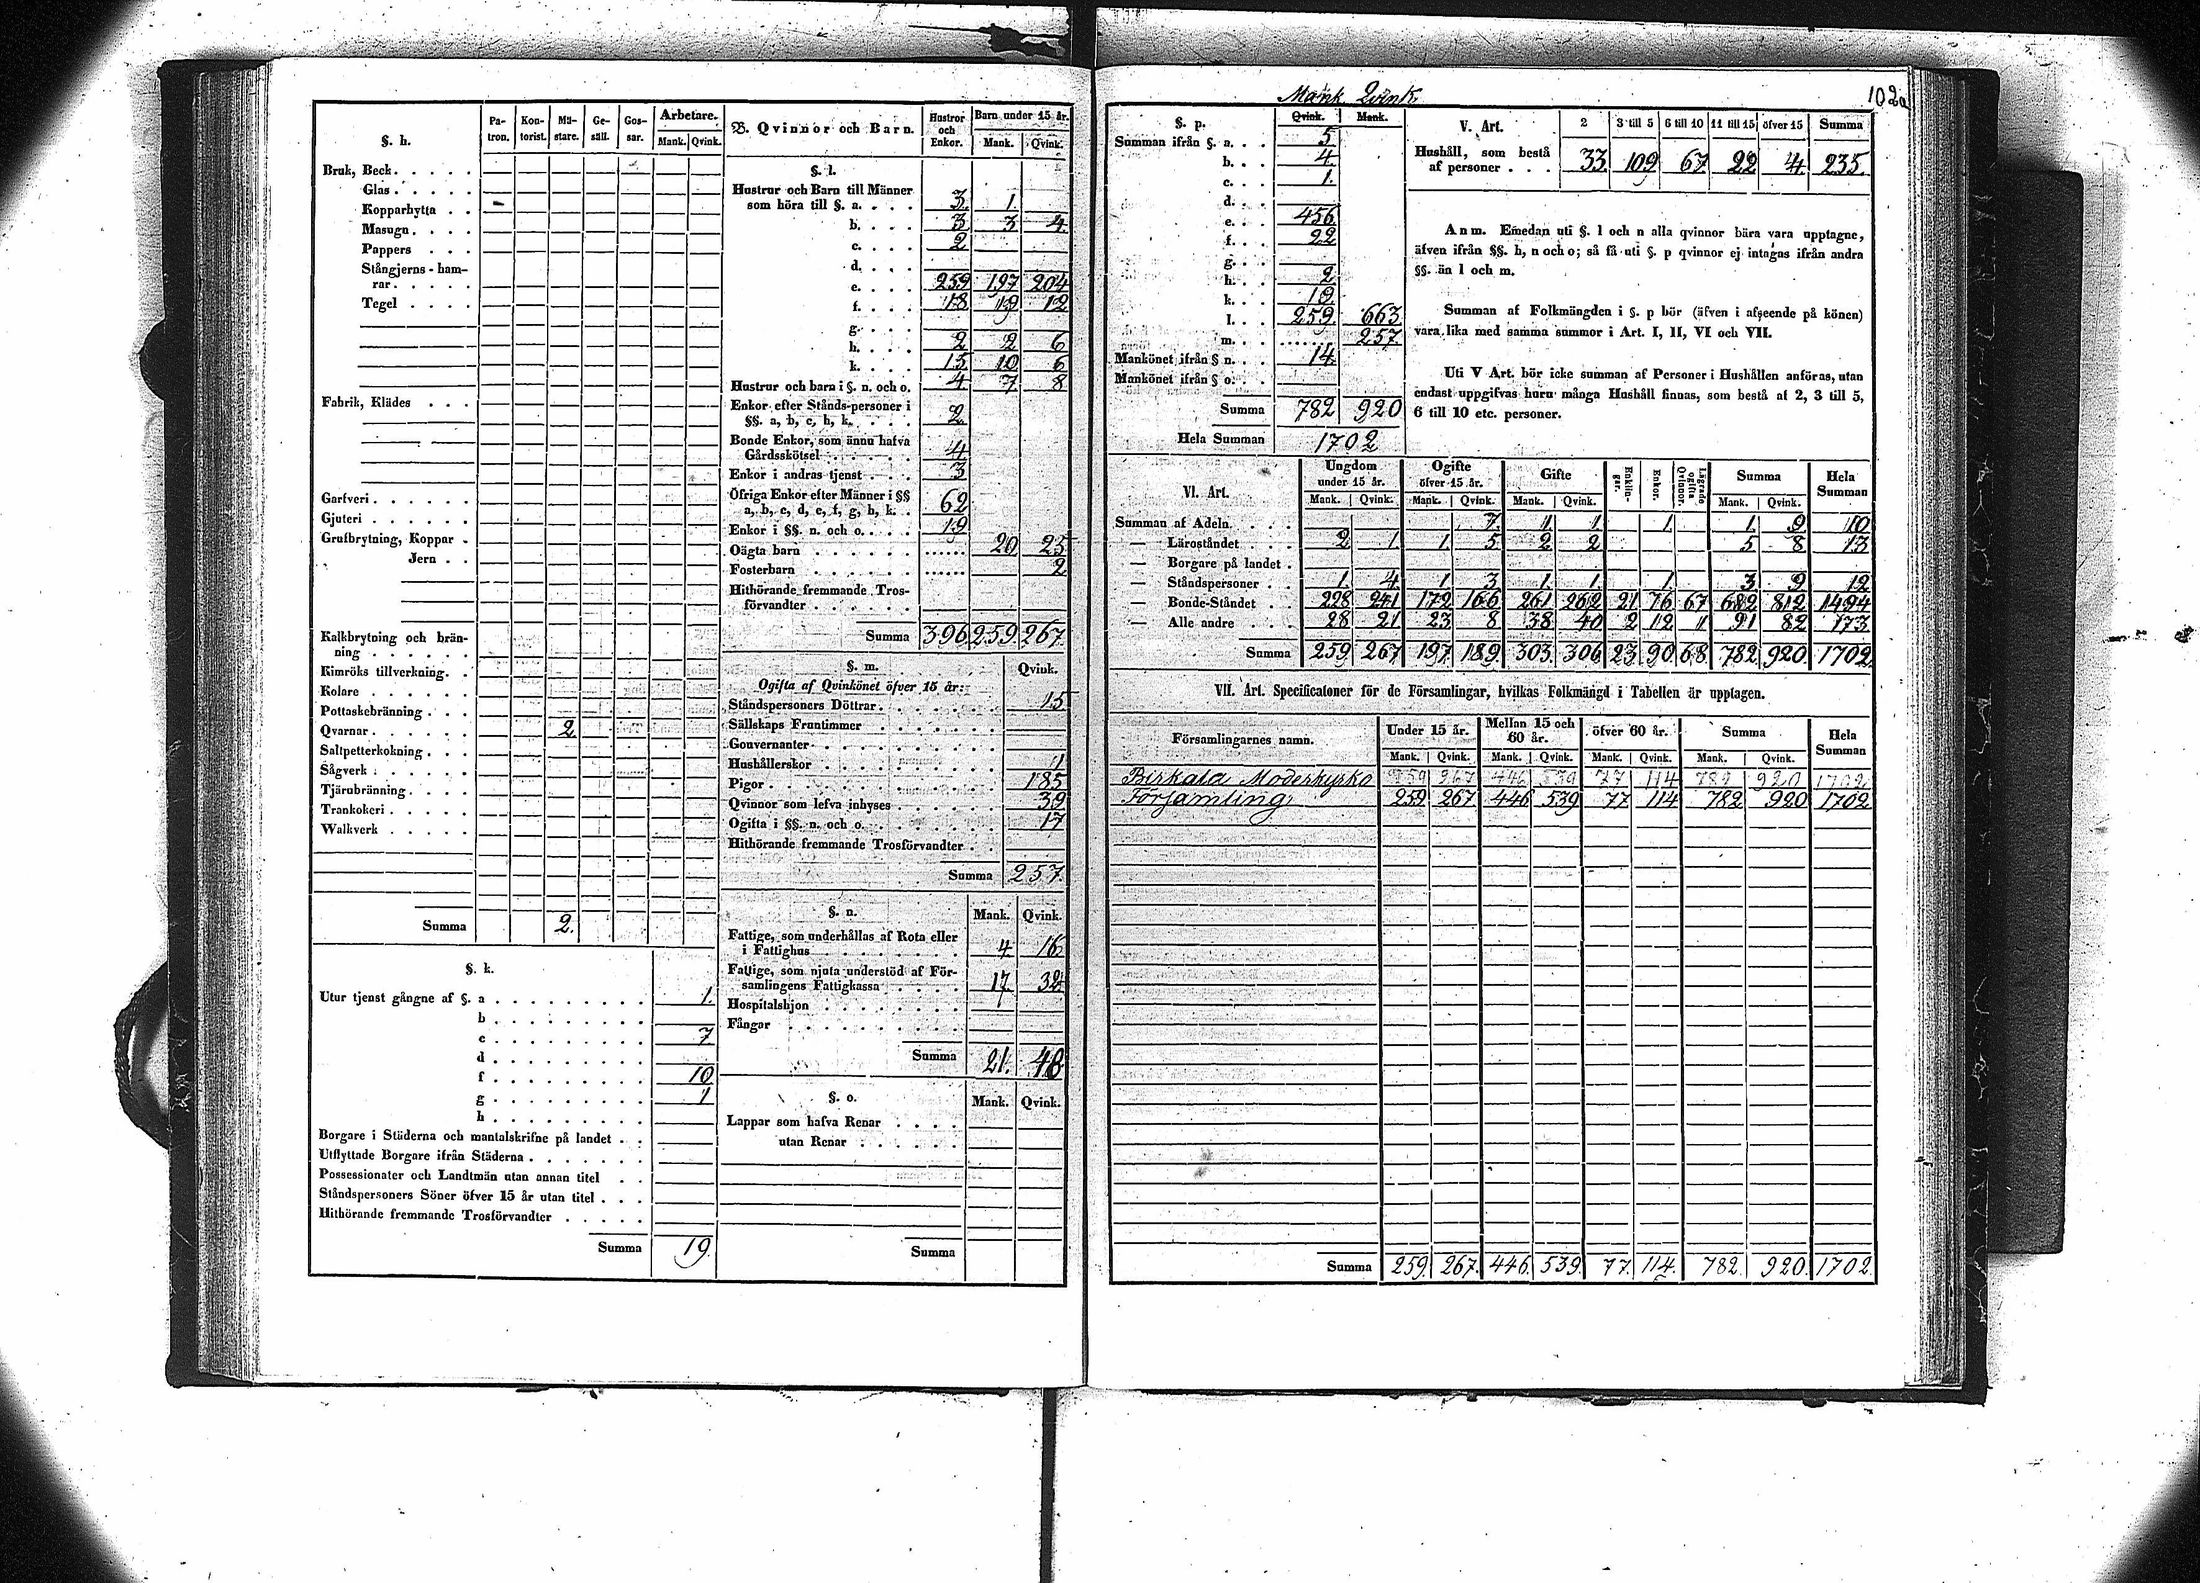 §. h.
Pa-tron. Kon-torist. Mä-stare. Ge-säll. Gos-sar. Arbetare.
Mank. Qvink.
Bruk, Beck
Glas
Kopparhytta
Masugn
Pappers
Stångjerns-ham-
rar
Tegel
Fabrik, Klädes
Garfveri
Gjuteri
Grufbrytning, Koppar
Jern
Kalkbrytning och brän-
ning
Kimröks tillverkning
Kolare
Pottaskebränning
Qvarnar 2
Saltpetterkokning
Sågverk
Tjärubränning
Trankokeri
Walkverk
Summa 2.
§. k.
Utur tjenst gångne af §. a 1.
b
c 7
d
f 10
g 1
h
Borgare i Städerna och mantalskrifne på landet
Utflyttade Borgare ifrån Städerna
Possessionater och Landtmän utan annan titel
Ståndspersoners Söner öfver 15 år utan titel
Hithörande fremmande Trosförvandter
Summa 19.
B. Qvinnor och Barn. Hustror och Enkor. Barn under 15 år.
Mank. Qvink.
§. l.
Hustrur och Barn till Männer
som höra till §. a. 3. 1
b. 3 3 4
c. 2
d.
e. 259 197 204
f. 18 19 12
g.
h. 2 2 6
k. 15 10 6
Hustrur och barn i §. n. och o. 4 7 8
Enkor efter Stånds-personer i
§§. a, b, c, h, k. 2
Bonde Enkor, som ännu hafva
Gårdsskötsel 4
Enkor i andras tjenst 3
Öfriga Enkor efter Männer i §§
a, b, c, d, e, f, g, h, k. 62
Enkor i §§. n. och o. 19
Oägta barn 20 25
Fosterbarn 2
Hithörande fremmande Tros-
förvandter
Summa 396 259. 267.
§. m. Qvink.
Ogifta af Qvinkönet öfver 15 år:
Ståndspersoners Döttrar 15
Sällskaps Fruntimmer
Gouvernanter
Hushållerskor 1
Pigor 185
Qvinnor som lefva inhyses 39
Ogifta i §§. n. och o. 17
Hithörande fremmande Trosförvandter
Summa 257.
§. n. Mank. Qvink.
Fattige, som underhållas af Rota eller
i Fattighus 4 16
Fattige, som njuta understöd af För-
samlingens Fattigkassa 17 32
Hospitalshjon
Fångar
Summa 21. 48
§. o. Mank. Qvink.
Lappar som hafva Renar
utan Renar
Summa
Mank. Qvink. 102a
§. p. Qvink. Mank.
Summan ifrån §. a. 5
b. 4
c. 1.
d.
e. 456
f. 22
g.
h. 2
k. 19
l. 259 663
m. 257
Mankönet ifrån § n. 14
Mankönet ifrån § o.
Summa 782 920
Hela Summan 1702
V. Art. 2 3 till 5 6 till 10 11 till 15 öfver 15 Summa
Hushåll, som bestå
af personer 33. 109 67 22 4. 235.
Anm. Emedan uti §. l och n alla qvinnor bära vara upptagne,
äfven ifrån §§. h, n och o; så få uti §. p qvinnor ej intagas ifrån andra
§§. än l och m.
Summan af Folkmängden i §. p bör (äfven i afseende på könen)
vara lika med samma summor i Art. I, II, VI och VII.
Uti V Art. bör icke summan af Personer i Hushållen anföras, utan
endast uppgifvas huru många Hushåll finnas, som bestå af 2, 3 till 5,
6 till 10 etc. personer.
VI. Art. Ungdom under 15 år. Ogifte öfver 15 år. Gifte Enklin-gar. Enkor. Lägrade ogifta Qvinnor. Summa Hela Summan
Mank. Qvink. Mank. Qvink. Mank. Qvink. Mank. Qvink.
Summan af Adeln 7. 1 1 1 1 9 10
— Läroståndet 2 1 1. 5 2 2 5 8 13
— Borgare på landet
— Ståndspersoner 1. 4 1 3 1. 1 1 3 9 12
— Bonde-Ståndet 228 241 172 166 261 262 21 76 67 682 812 1494
— Alle andre 28 21 23 8 38 40 2 12 1 91 82 173
Summa 259 267 197. 189. 303. 306 23. 90. 68. 782 920. 1702.
VII. Art. Specificationer för de Församlingar, hvilkas Folkmängd i Tabellen är upptagen.
Församlingarnes namn. Under 15 år. Mellan 15 och 60 år. öfver 60 år. Summa Hela Summan
Mank. Qvink. Mank. Qvink. Mank. Qvink. Mank. Qvink.
Birkala Moderkyrko 259 267 446 539 77 114 782 920 1702
Församling 259 267 446 539 77 114 782 920 1702
Summa 259. 267. 446. 539. 77. 114. 782. 920. 1702.